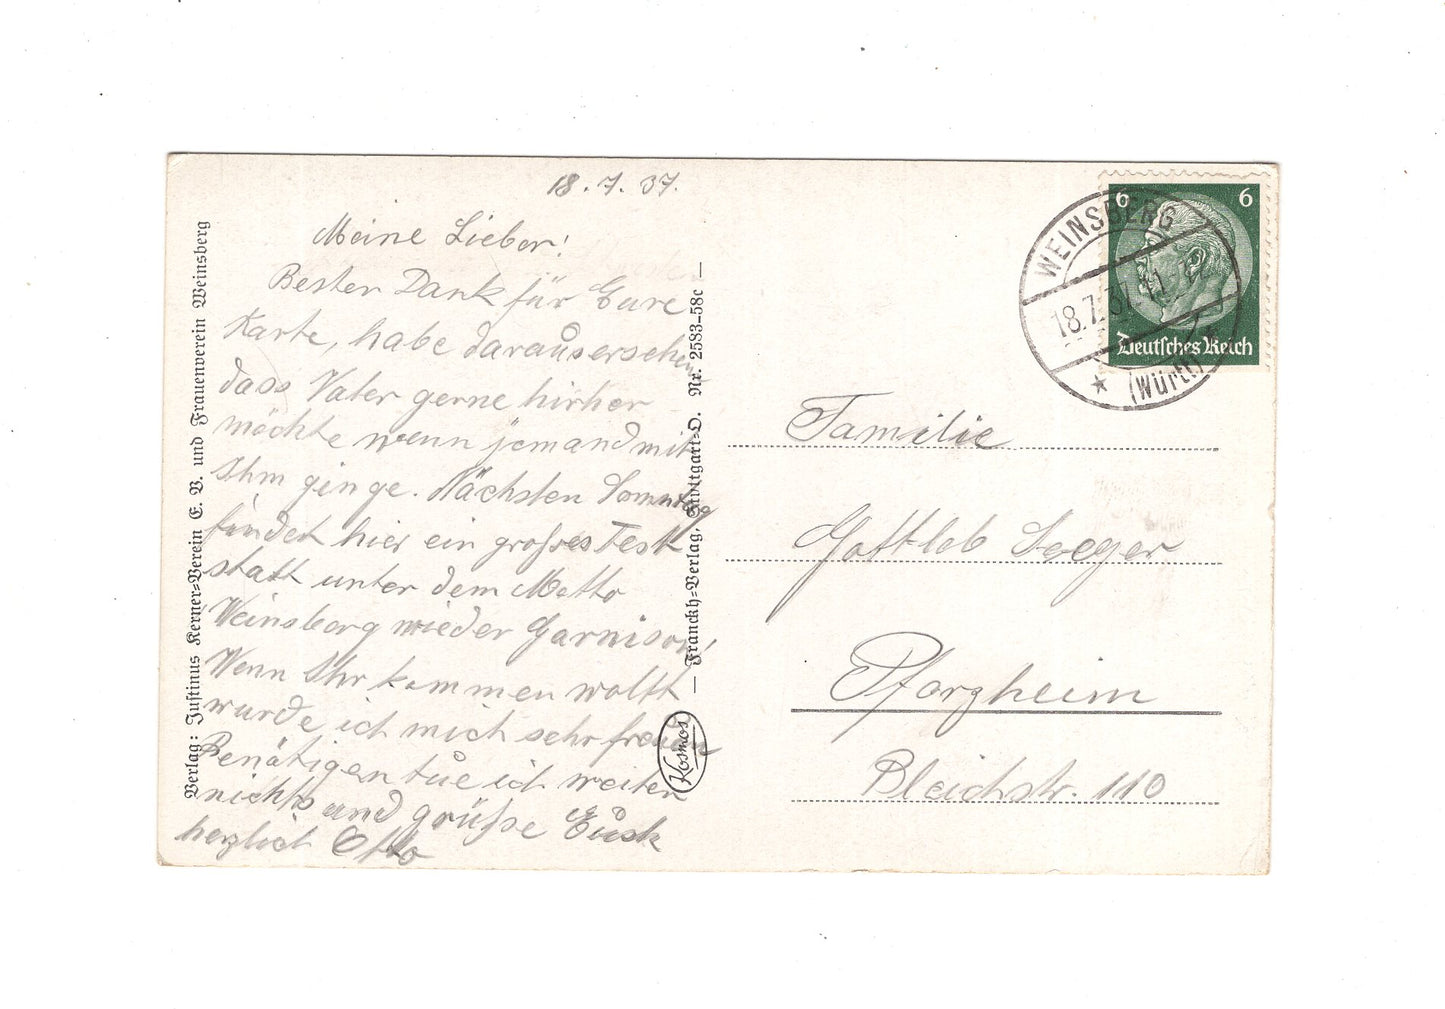 18. 7. 37.
Meine Lieben!
Besten Dank für Eure
Karte, habe daraus ersehen
dass Vater gerne hirher
möchte wenn jemand mit
Ihm ginge. Nächsten Sonntag
findet hier ein großes Fest
statt unter dem Motto
Weinsberg wieder Garnison!
Wenn Ihr kommen wollt
wurde ich mich sehr freuen
Benätigen tue ich weiter
nichts und grüße Euch
herzlich Otto
Verlag: Justinus Kerner-Verein E. V. und Frauenverein Weinsberg
— Franckh-Verlag, Stuttgart-O. Nr. 2583-58c —
Kosmos
6 6
Deutsches Reich
WEINSBERG
18.7.37.11
(Württ)
Familie
Gottlob Seeger
Pforzheim
Bleichstr. 110